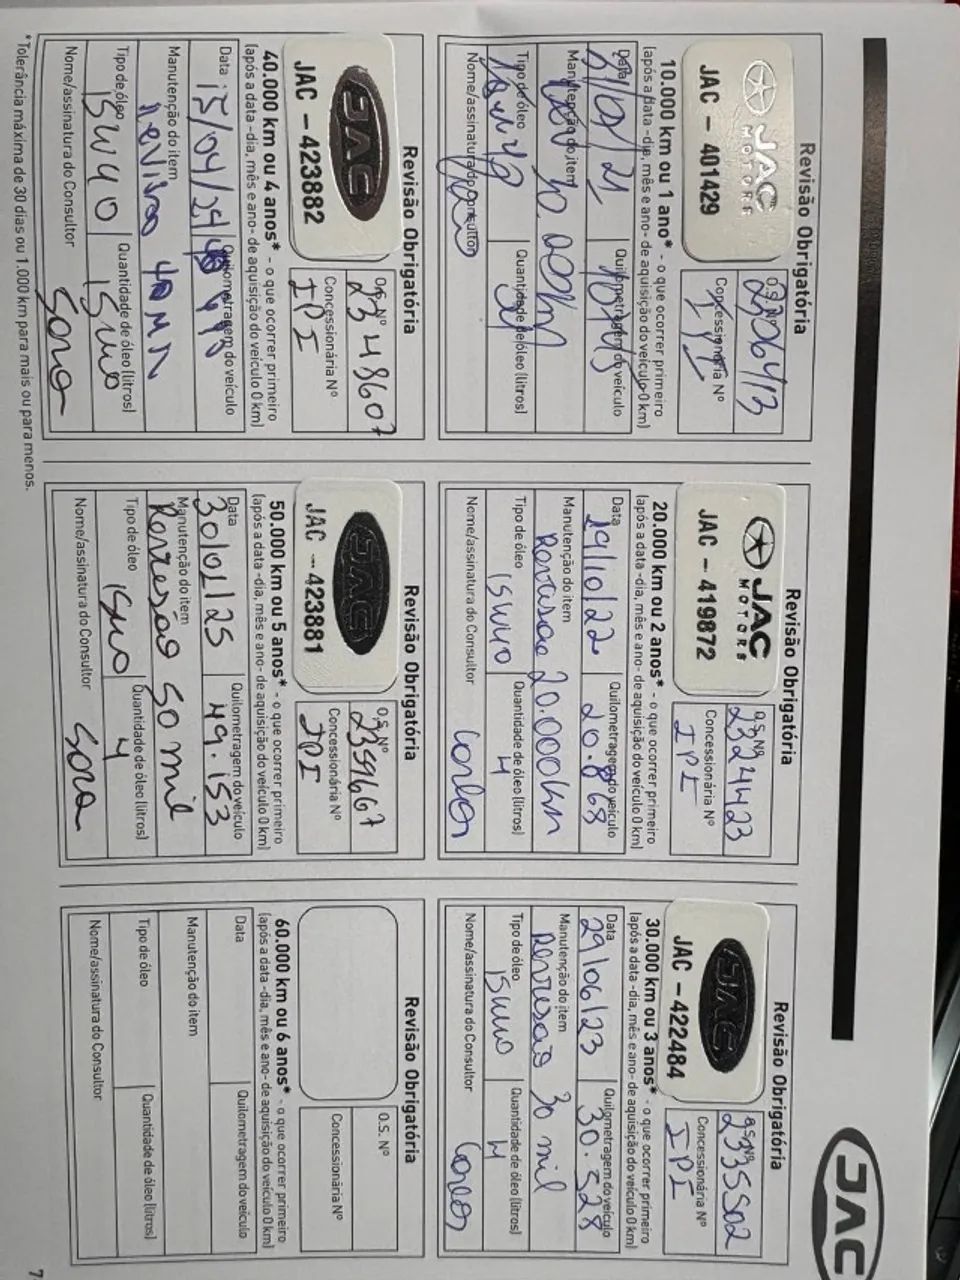 JAC
Revisão Obrigatória
JAC MOTORS
JAC – 401429
O.S. Nº
Concessionária Nº
10.000 km ou 1 ano* - o que ocorrer primeiro
(após a data -dia, mês e ano- de aquisição do veículo 0 km)
Data
Quilometragem do veículo
Manutenção do item
Tipo de óleo
Quantidade de óleo (litros)
Nome/assinatura do Consultor
Revisão Obrigatória
JAC MOTORS
JAC – 419872
O.S. Nº
2324423
Concessionária Nº
IPI
20.000 km ou 2 anos* - o que ocorrer primeiro
(após a data -dia, mês e ano- de aquisição do veículo 0 km)
Data
19/10/22
Quilometragem do veículo
20.868
Manutenção do item
Revisão 20.000km
Tipo de óleo
15W40
Quantidade de óleo (litros)
4
Nome/assinatura do Consultor
Revisão Obrigatória
JAC
JAC – 422484
O.S. Nº
2335502
Concessionária Nº
IPI
30.000 km ou 3 anos* - o que ocorrer primeiro
(após a data -dia, mês e ano- de aquisição do veículo 0 km)
Data
29/06/23
Quilometragem do veículo
30.528
Manutenção do item
Revisão 30 mil
Tipo de óleo
15W40
Quantidade de óleo (litros)
4
Nome/assinatura do Consultor
Revisão Obrigatória
JAC
JAC – 423882
O.S. Nº
2348607
Concessionária Nº
IPI
40.000 km ou 4 anos* - o que ocorrer primeiro
(após a data -dia, mês e ano- de aquisição do veículo 0 km)
Data
15/04/24
Quilometragem do veículo
Manutenção do item
revisão 40
Tipo de óleo
15W40
Quantidade de óleo (litros)
Nome/assinatura do Consultor
Revisão Obrigatória
JAC
JAC – 423881
O.S. Nº
2359667
Concessionária Nº
IPI
50.000 km ou 5 anos* - o que ocorrer primeiro
(após a data -dia, mês e ano- de aquisição do veículo 0 km)
Data
30/01/25
Quilometragem do veículo
49.153
Manutenção do item
Revisão 50 mil
Tipo de óleo
15W40
Quantidade de óleo (litros)
4
Nome/assinatura do Consultor
Revisão Obrigatória
O.S. Nº
Concessionária Nº
60.000 km ou 6 anos* - o que ocorrer primeiro
(após a data -dia, mês e ano- de aquisição do veículo 0 km)
Data
Quilometragem do veículo
Manutenção do item
Tipo de óleo
Quantidade de óleo (litros)
Nome/assinatura do Consultor
*Tolerância máxima de 30 dias ou 1.000 km para mais ou para menos.
7